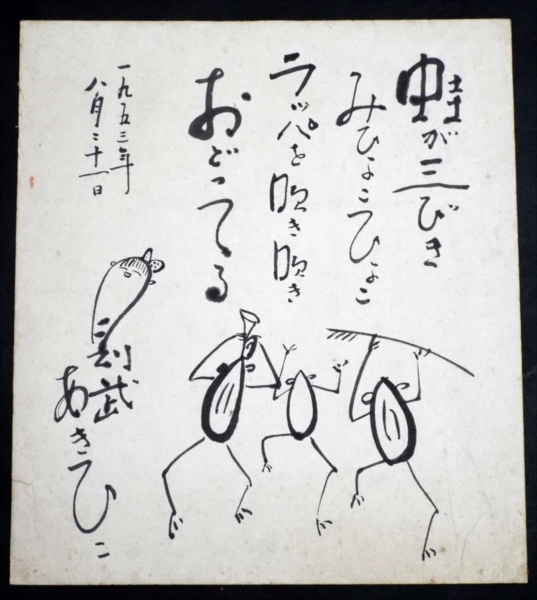 蛙が三びき
みひょこひょこ
ラッパを吹き吹き
おどってる
一九五三年
八月二十一日
あきひこ